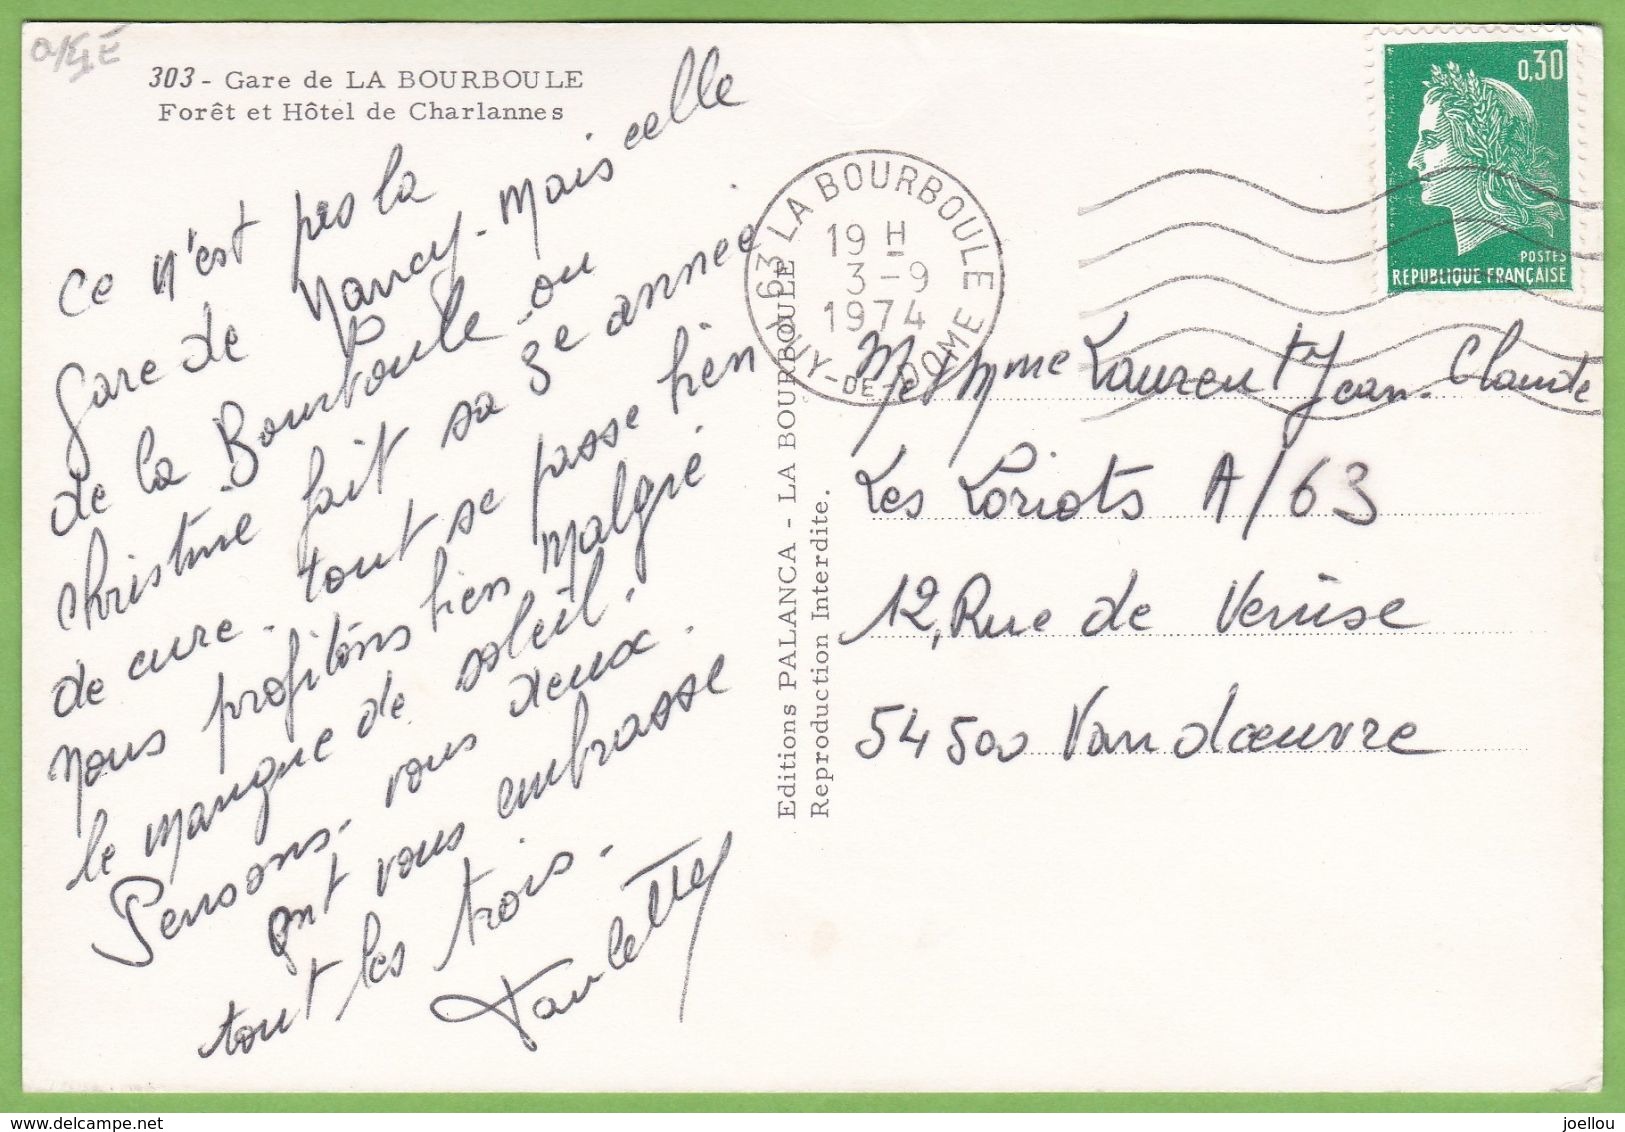 303 - Gare de LA BOURBOULE
Forêt et Hôtel de Charlannes
ce n'est pas la
gare de Nancy - Mais celle
de la Bourboule ou
christine fait sa 3e année
de cure - tout se passe bien
nous profitons bien malgré
le manque de soleil.
Pensons - vous deux.
ont vous embrasse
tout les trois -
Paulette
Editions PALANCA - LA BOURBOULE
Reproduction Interdite.
63 LA BOURBOULE
19 H
3-9
1974
PUY-DE-DOME
0,30
POSTES
REPUBLIQUE FRANÇAISE
Mr et Mme Laurent Jean-Claude
Les Loriots A/63
12, Rue de Venise
54500 Vandoeuvre
www.delcampe.net
joellou